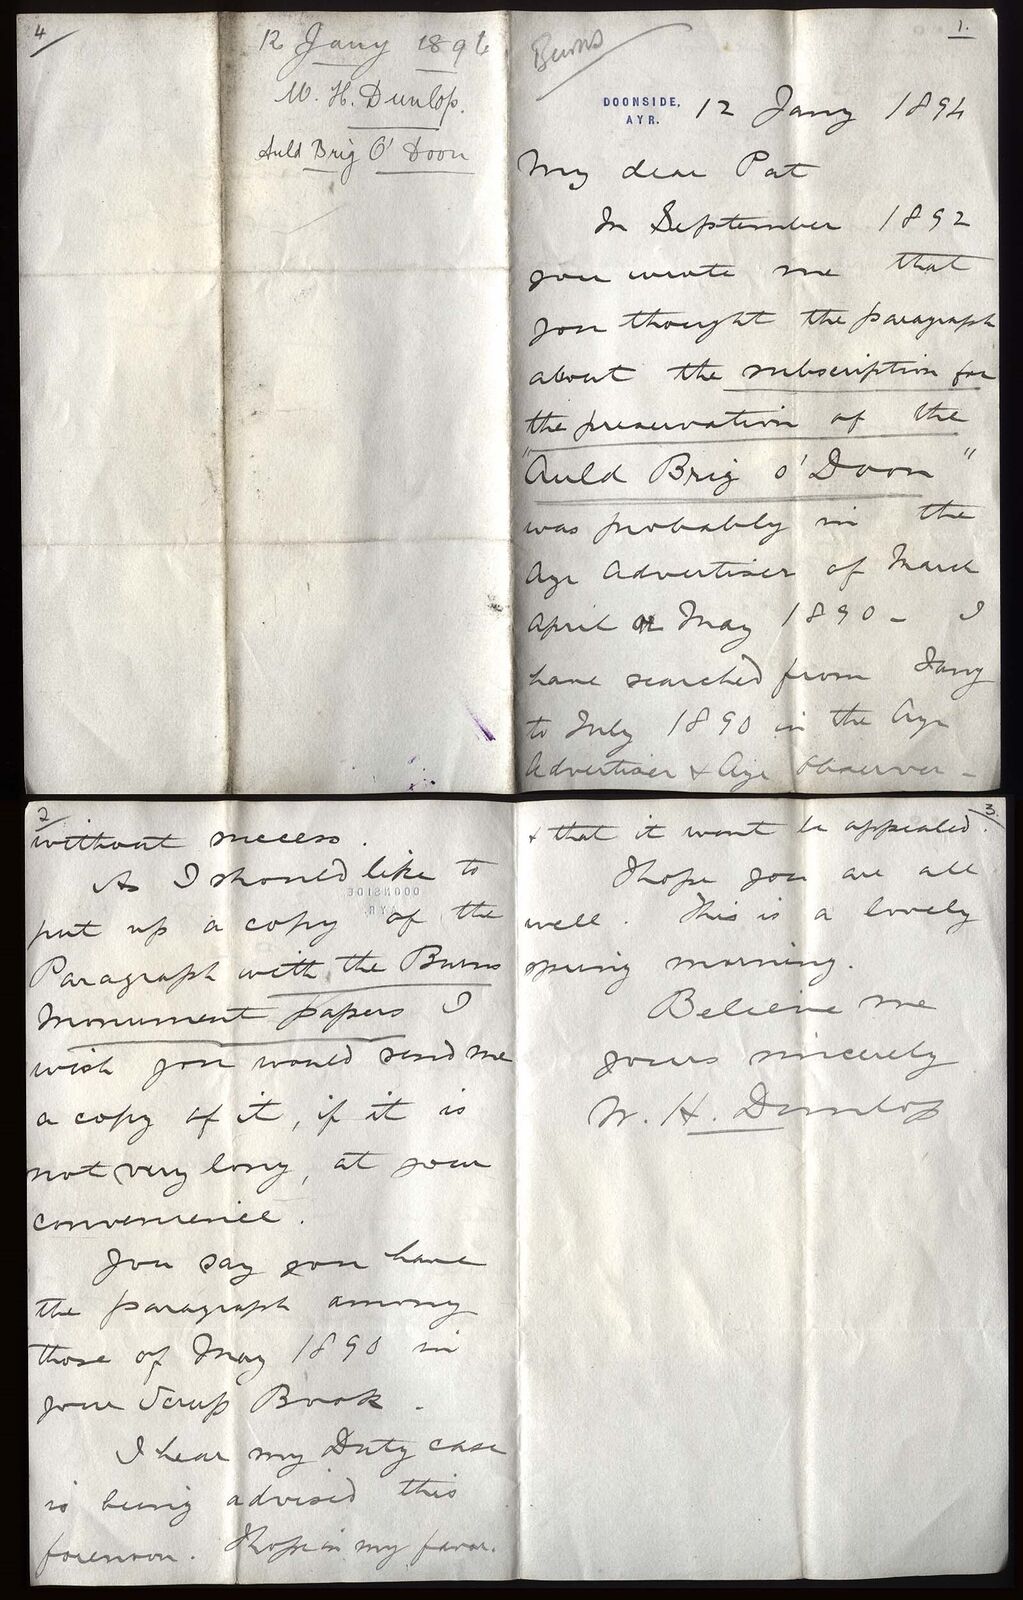 1.
Burns
DOONSIDE,
AYR.
12 Jany 1894
My dear Pat
In September 1892
you wrote me that
you thought the paragraph
about the subscription for
the preservation of the
"Auld Brig o' Doon"
was probably in the
Ayr Advertiser of March
April or May 1890 - I
have searched from Jany
to July 1890 in the Ayr
Advertiser & Ayr Observer -
2
without success.
As I should like to
put up a copy of the
Paragraph with the Burns
Monument papers I
wish you would send me
a copy of it, if it is
not very long, at your
convenience.
You say you have
the paragraph among
those of May 1890 in
your Scrap Book.
I hear my Duty case
is being advised this
forenoon. I hope in my favor.
3
& that it wont be appealed.
I hope you are all
well. This is a lovely
spring morning.
Believe me
yours sincerely
W. H. Dunlop
4
12 Jany 1894
W. H. Dunlop.
Auld Brig O' Doon